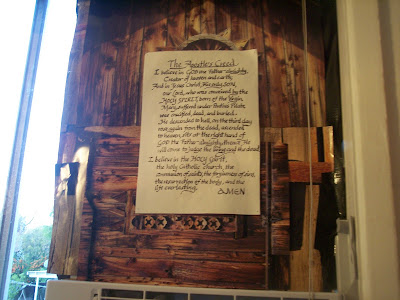 The Apostle's Creed
I believe in GOD the Father almighty,
Creator of heaven and earth;
And in Jesus Christ, His only SON,
our Lord, who was conceived by the
HOLY SPIRIT, born of the Virgin
Mary, suffered under Pontius Pilate
was crucified, dead, and buried.
He descended to hell, on the third day
rose again from the dead, ascended
to heaven, sits at the right hand of
GOD the Father almighty, thence He
will come to judge the living and the dead.
I believe in the HOLY SPIRIT,
the holy Catholic Church, the
communion of saints, the forgiveness of sins,
the resurrection of the body, and the
life everlasting.
AMEN